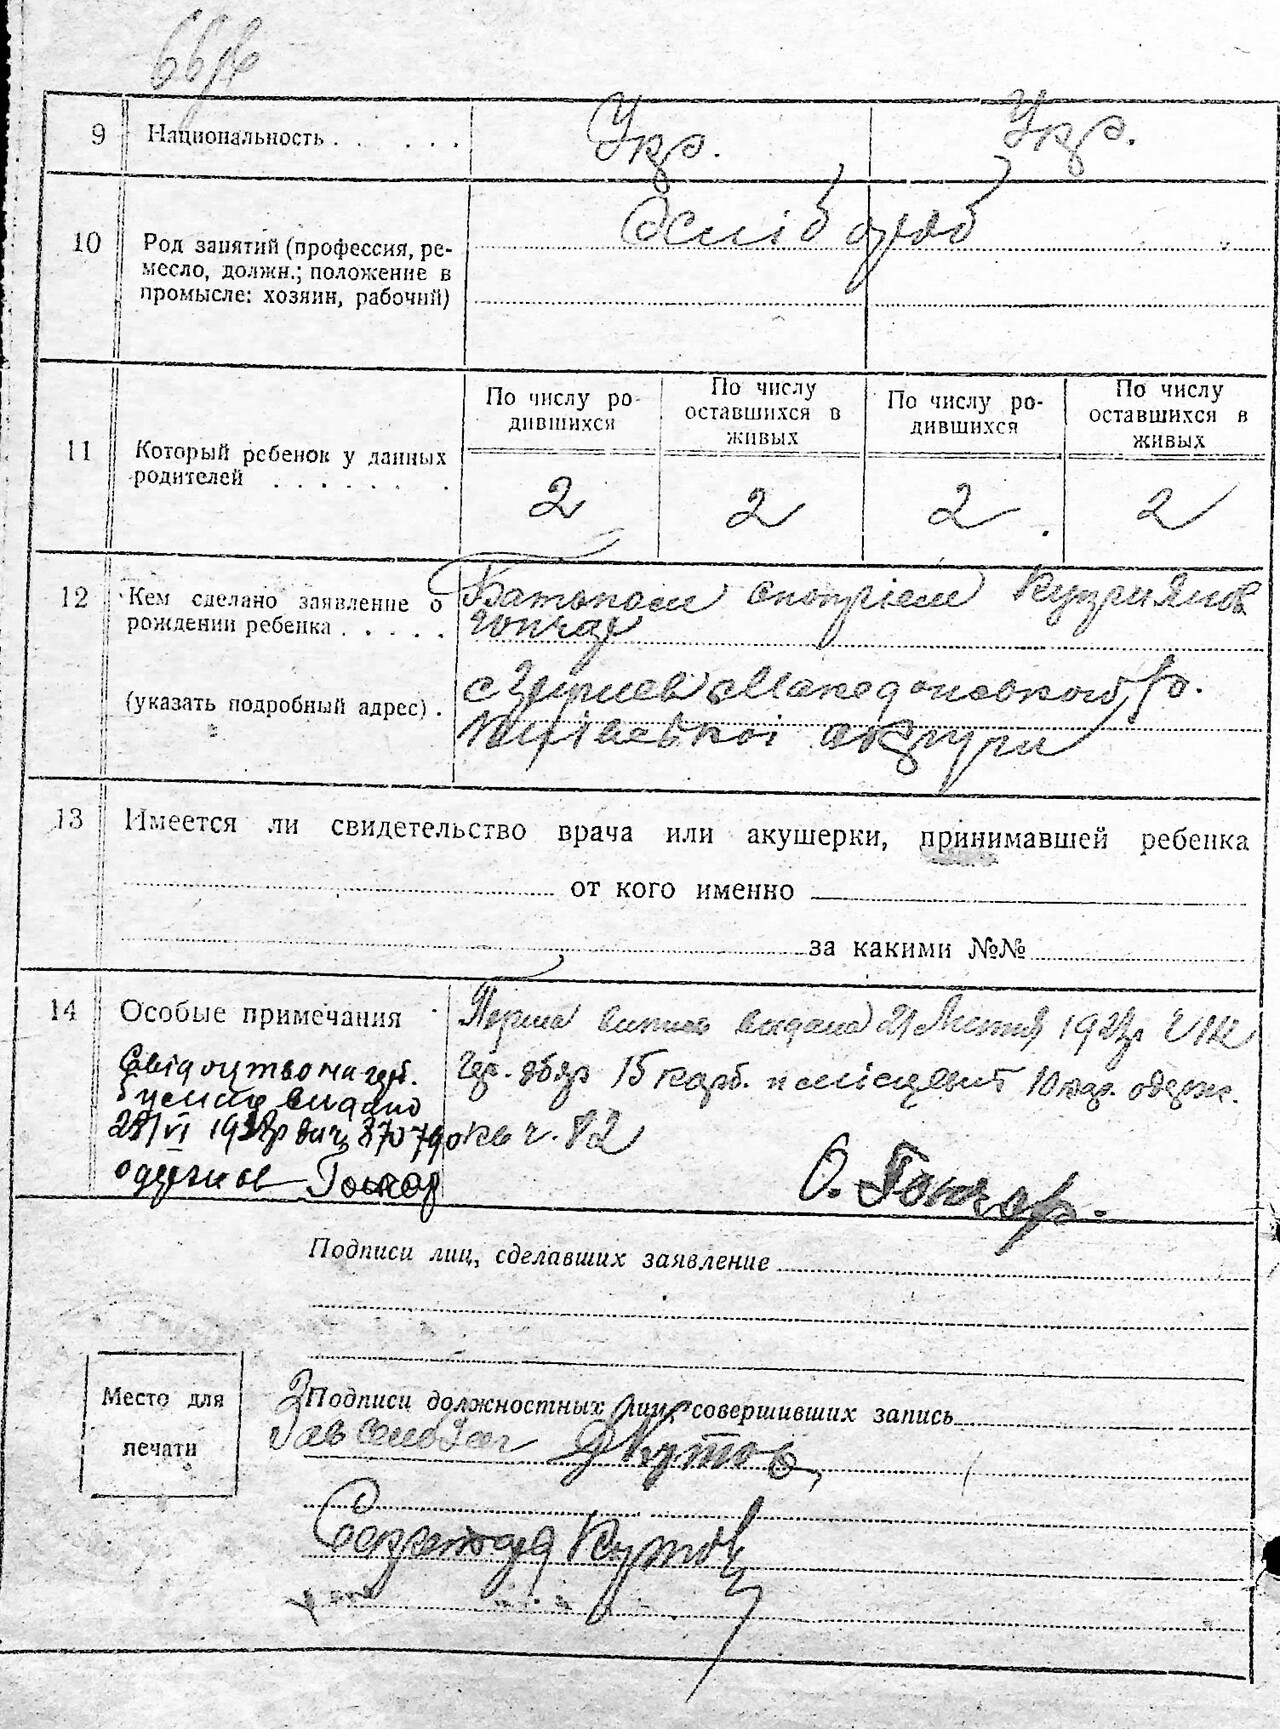 9 Национальность . . . . . . Укр. Укр.
10 Род занятий (профессия, ре-
месло, должн.; положение в
промысле: хозяин, рабочий)
Хлібороб
11 Который ребенок у данных
родителей . . . . . . .
По числу ро-
дившихся
По числу
оставшихся в
живых
По числу ро-
дившихся
По числу
оставшихся в
живых
2 2 2 2
12 Кем сделано заявление о
рождении ребенка . . . . .
(указать подробный адрес) .
Батьком
Гончар
с
округи
13 Имеется ли свидетельство врача или акушерки, принимавшей ребенка
от кого именно
за какими №№
14 Особые примечания
Перша випись видана 21
15 карб. 10 кар. одерж.
кв ч. 82
О. Гончар.
Свідоцтво
видано
28/VI
одержав Гончар
Подписи лиц, сделавших заявление
Место для
печати
Подписи должностных лиц, совершивших запись
Кутов
Секретарь Кутов